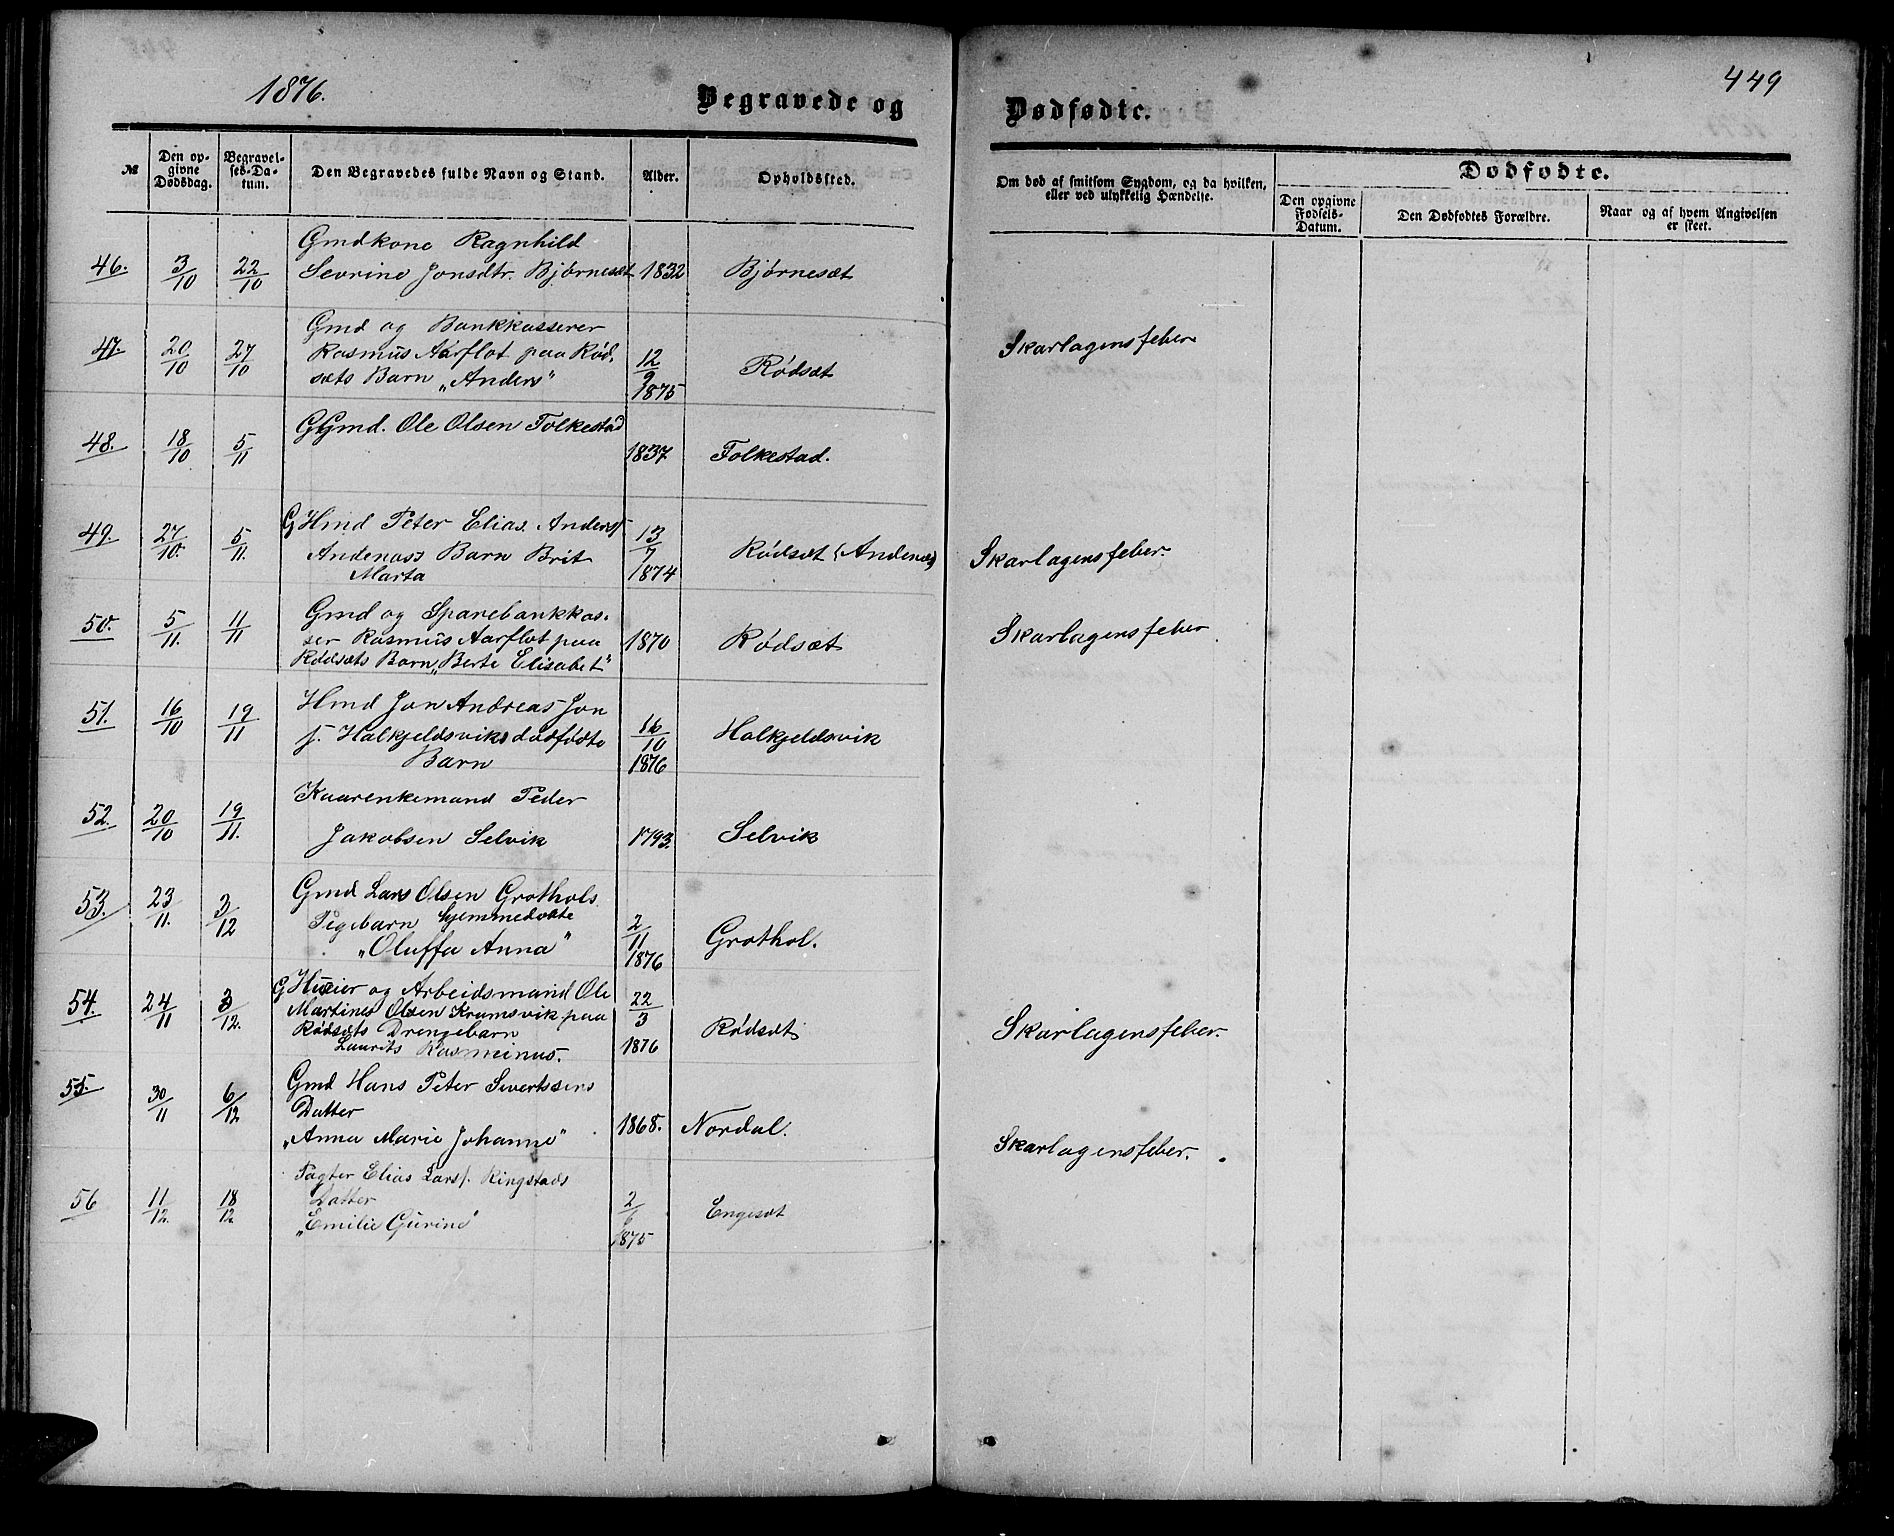 1876.
Begravede og
Dødfødte.
449
№
Den opgivne Dødsdag.
Begravelses-Datum.
Den Begravedes fulde Navn og Stand.
Alder.
Opholdssted.
Om død af smitsom Sygdom, og da hvilken, eller ved ulykkelig Hændelse.
Dødfødte.
Den opgivne Fødsels-Datum.
Den Dødfødtes Forældre.
Naar og af hvem Angivelsen er skeet.
Gmdkone Ragnhild
46. 3/10 22/10 Sevrine Jonsdtr. Bjørnesæt 1832 Bjørnesæt
Gmd og Bankkasserer
47. 20/10 27/10 Rasmus Aarflot paa Rød- 12/9 Skarlagensfeber
sæts Barn „Anders" 1875 Rødsæt
GGmd. Ole Olsen Folkestad
48. 18/10 5/11 1837 Folkestad.
49. 27/10. 5/11. G Hmd Peter Elias Anders 13/7
Andenæss Barn Brit Rødsæt (Andenæs) Skarlagensfeber.
Marta 1874
Gmd og Sparebankkas-
50. 5/11. 11/11 ser Rasmus Aarflot paa 1870 Rødsæt Skarlagensfeber
Rødsæts Barn „Berte Elisabet"
51. 16/10 19/11 Hmd Jon Andreas Jon
s. Halkjeldsviks dødfødte 16/10 Halkjeldsvik
Barn 1876
Kaarenkemand Peder
52. 20/10 19/11. Jakobsen Selvik 1793. Selvik
53. 23/11. 3/12 Gmd Lars Olsen Grothols
Pigebarn hjemmedøbte 2/11
„Oluffa Anna" 1876 Grothol.
54. 24/11 3/12. G Husier og Arbeidsmand Ole 22/3
Martinus Olsen Kramsvik paa
Rødsæts Drengebarn Rødsæt Skarlagensfeber.
Laurits Rasminus. 1876
55. 30/11 6/12 Gmd Hans Peter Sivertssens
Datter 1868. Nordal.
„Anna Marie Johanne" Skarlagensfeber.
Pagter Elias Larss. Ringstads
56 11/12. 18/12 Datter 2/6 Engesæt
„Emilie Gurine" 1875